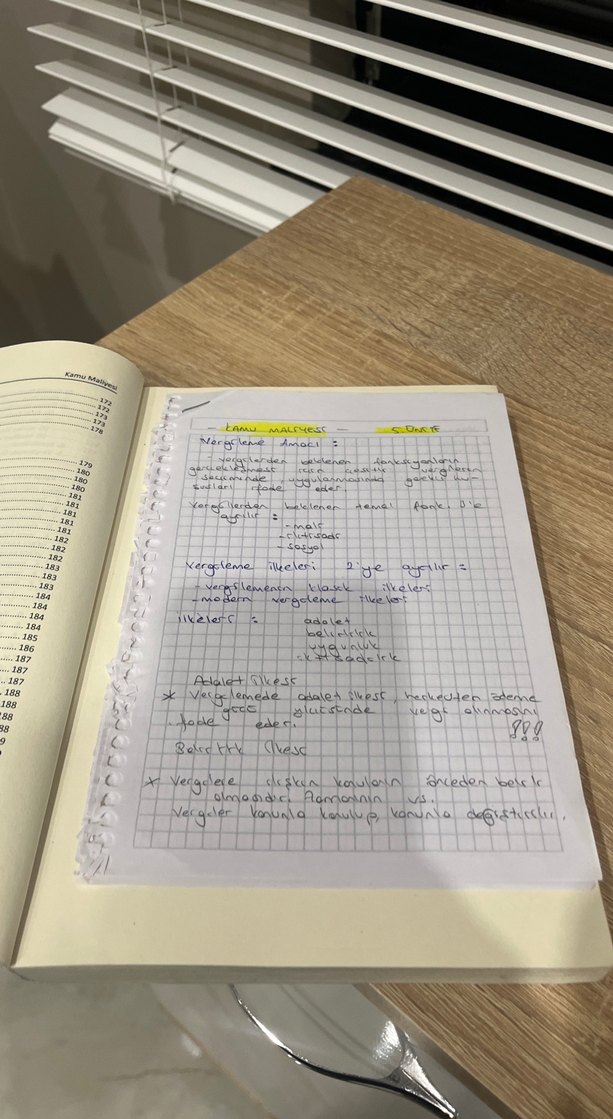 Kamu Maliyesi
172
172
173
173
178
179
180
180
180
181
181
181
181
181
182
182
182
183
183
183
184
184
184
184
185
186
187
187
187
188
188
88
88
9
- KAMU MALİYESİ - 5. ÜNİTE
Vergileme Amacı :
- vergilerden beklenen fonksiyonların
gerçekleşmesi için çeşitli vergilerin
seçiminde, uygulanmasında gerekli hu-
susları ifade eder.
Vergilerden beklenen temel fonk.
ayrılır :
- mali
- iktisadi
- sosyal
Vergileme ilkeleri 2'ye ayrılır :
- vergilemenin klasik ilkeleri
- modern vergileme ilkeleri
ilkeleri : adalet
belirlilik
uygunluk
iktisadilik
Adalet İlkesi
* Vergilemede adalet ilkesi, herkesten ödeme
gücü ölçüsünde vergi alınmasını
ifade eder. !!!
Belirlilik İlkesi
* Vergilere ilişkin konuların önceden belirli
olmasıdır. vs.
Vergiler kanunla konulup, kanunla değiştirilir.